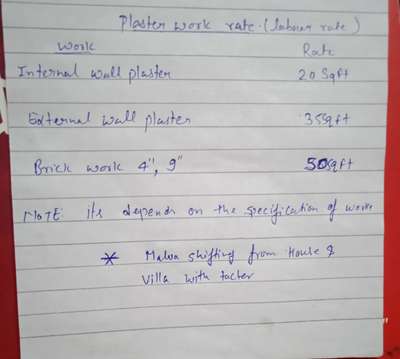 Plaster work rate. (labour rate)
Work Rate
Internal wall plaster 20 Sqft
External wall plaster 35Sqft
Brick work 4", 9" 50Sqft
NOTE its depends on the specification of work
* Malva shifting from House &
Villa with tacter